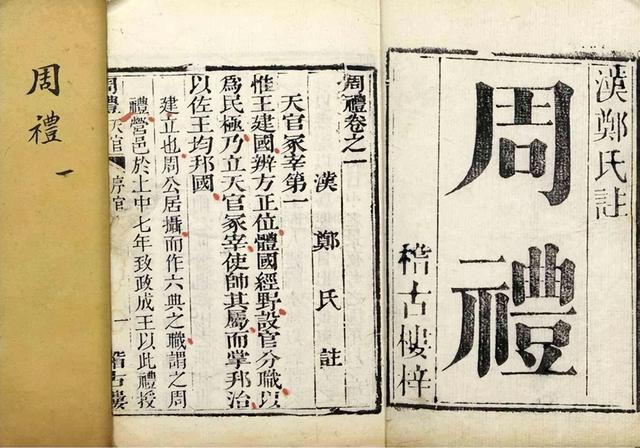 漢鄭氏註
周禮
稽古樓梓
周禮卷之一
漢鄭氏註
天官冢宰第一
惟王建國辨方正位體國經野設官分職以
爲民極乃立天官冢宰使帥其屬而掌邦治
以佐王均邦國
建立也周公居攝而作六典之職謂之周
禮營邑於土中七年致政成王以此禮授
周禮 天官 序官 一 稽古樓
周禮 一